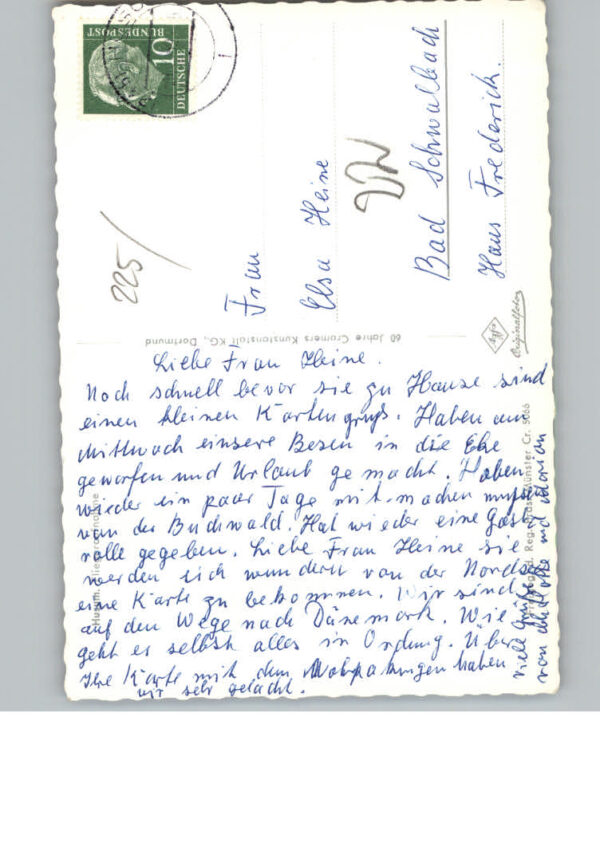 10
DEUTSCHE
BUNDESPOST
225/
Frau
Elsa Heine
Bad Schwalbach
Haus Frederick.
60 Jahre Cramers Kunstanstalt KG., Dortmund
Agfa
Originalfoto
Cr. 5066
Liebe Frau Heine.
Noch schnell bevor sie zu Hause sind
einen kleinen Kartengruß. Haben am
Mittwoch einsere Besen in die Ehe
geworfen und Urlaub gemacht. Haben
wieder ein paar Tage mit-machen müssen
von der Buchwald. Hat wieder eine Gast
rolle gegeben. Liebe Frau Heine sie
werden sich wundern von der Nordsee
eine Karte zu bekommen. Wir sind
auf den Wege nach Dänemark. Wie
geht es selbst alles in Ordnung. Über
Ihre Karte mit dem haben
wir sehr gelacht.
viele Grüße
von und